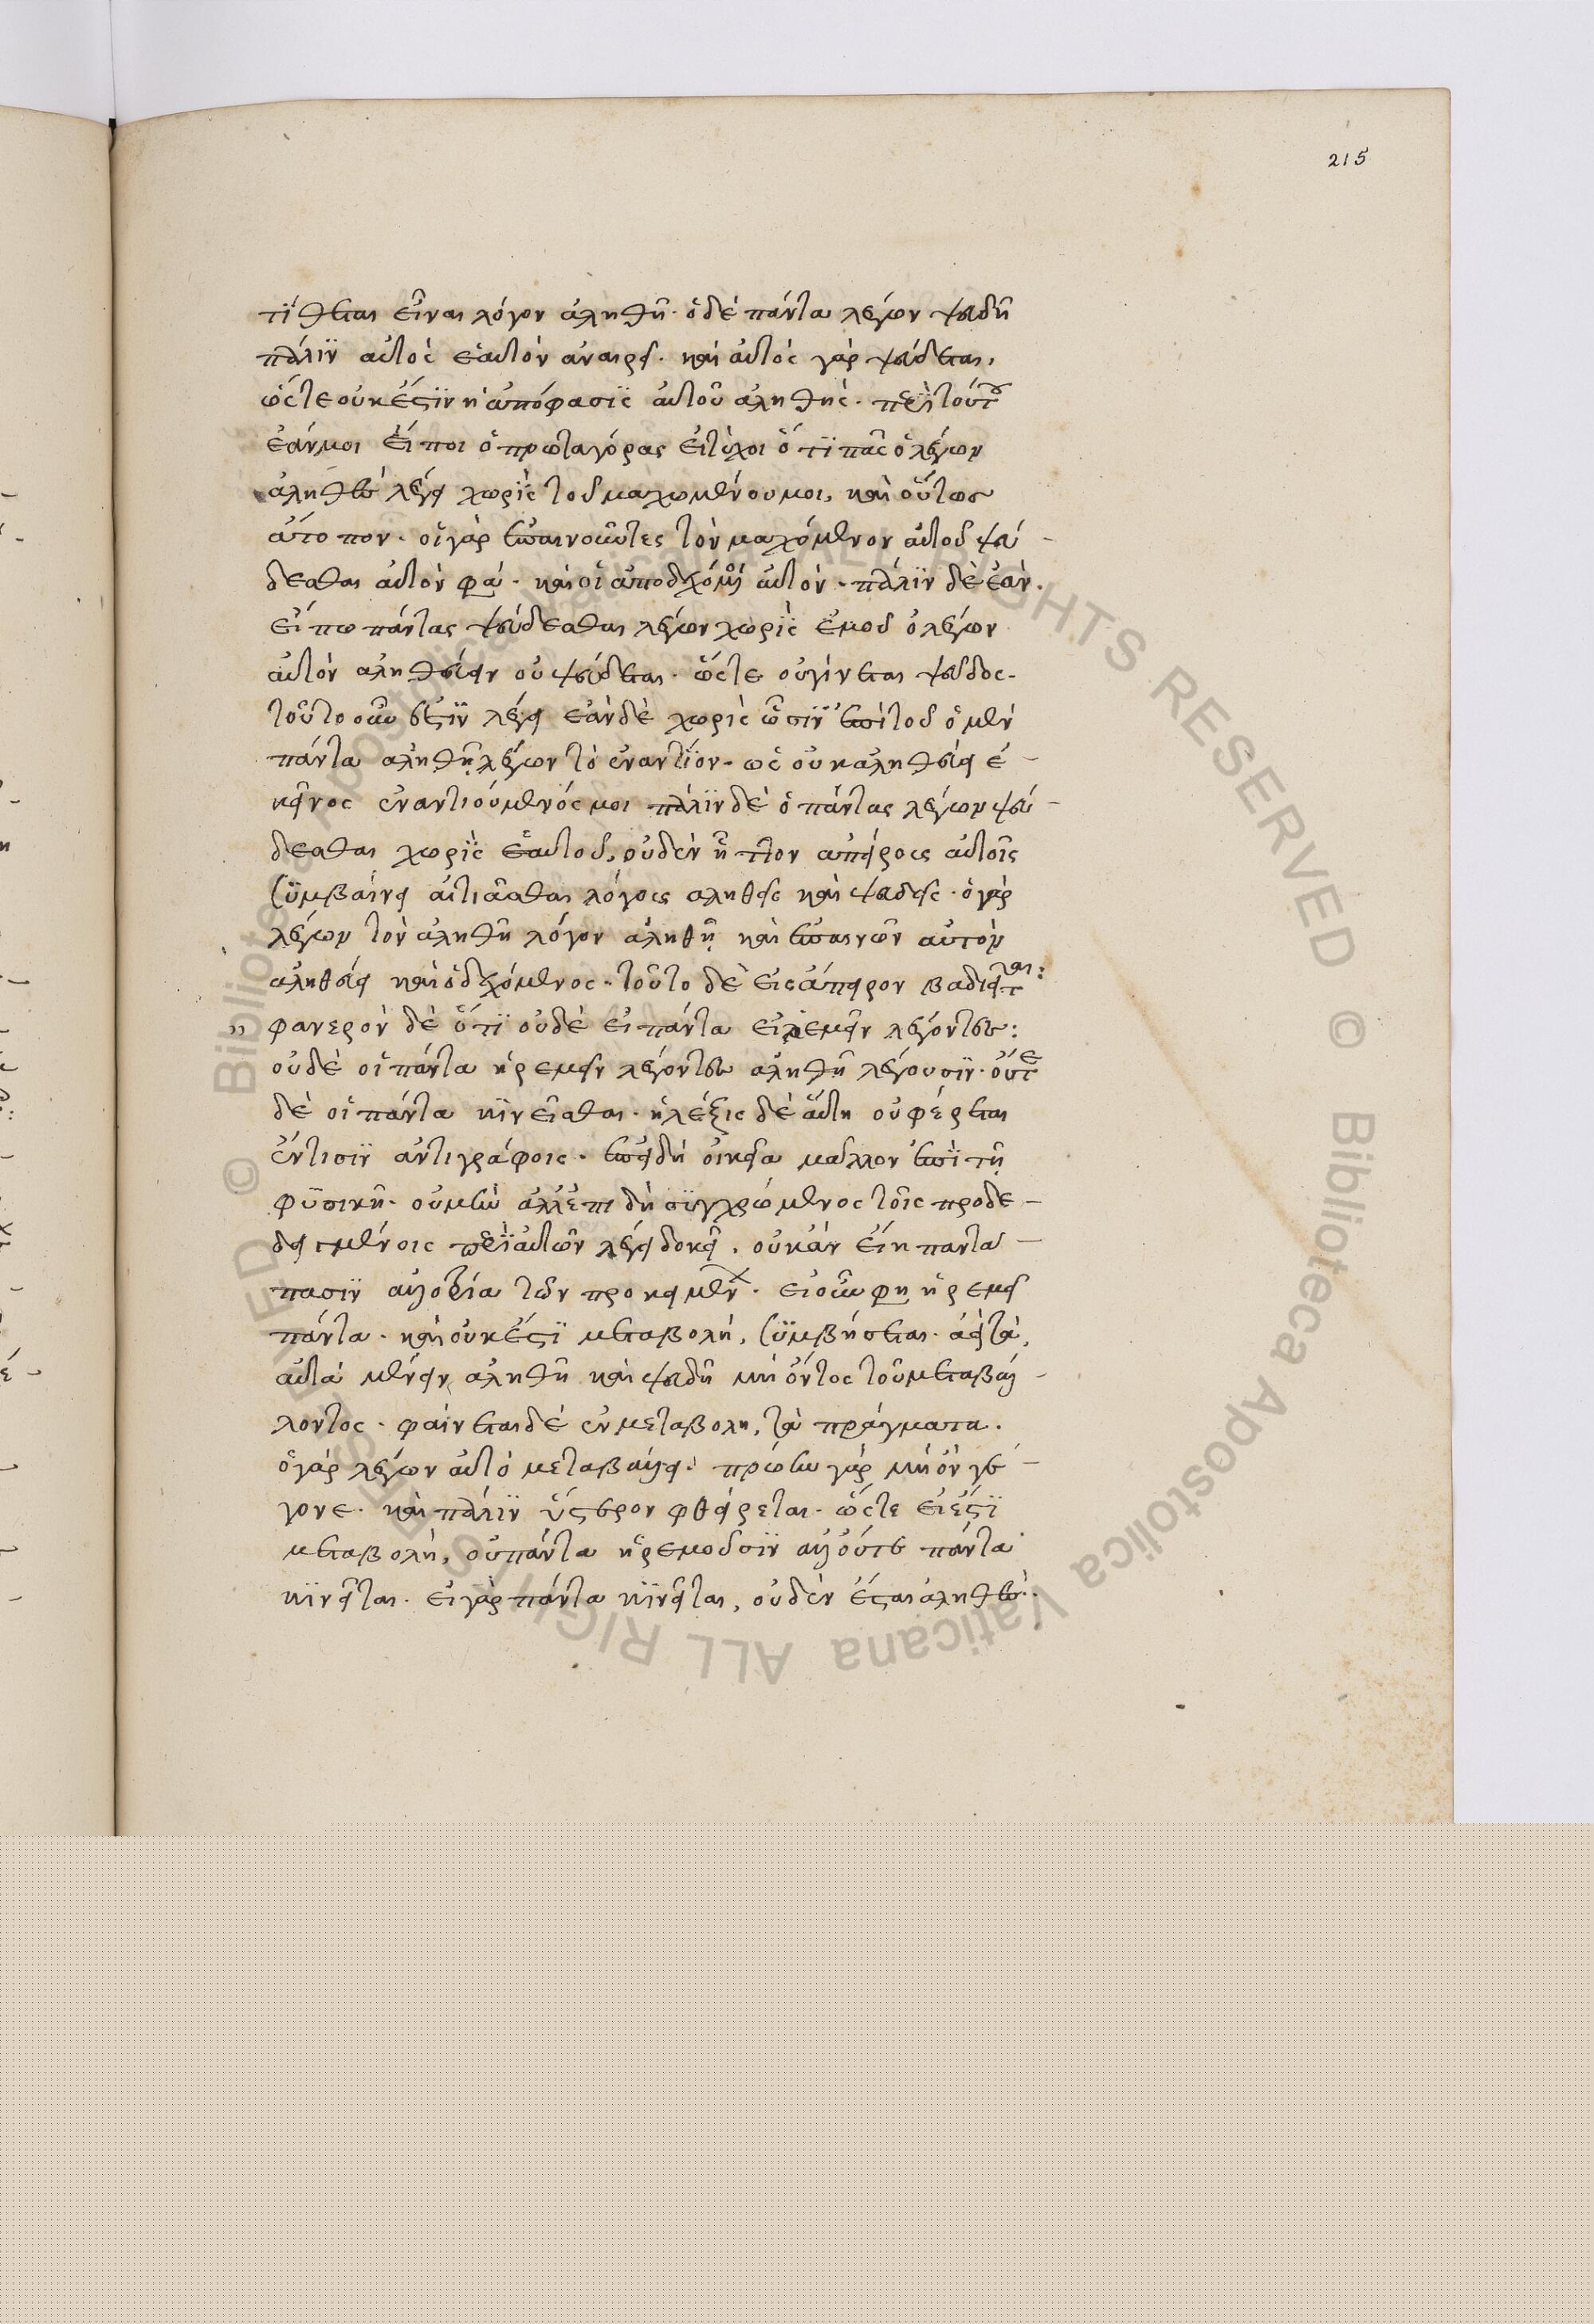 215
τίθεται εἶναι λόγον ἀληθῆ. ὁ δὲ πάντα λέγων ψευδῆ
πάλιν αὐτὸς ἑαυτὸν ἀναιρεῖ. καὶ αὐτὸς γὰρ ψεύδεται,
ὥστε οὐκ ἔστιν ἡ ἀπόφασις αὐτοῦ ἀληθής. περὶ τούτου
ἐάν μοι εἴποι ὁ πρωταγόρας εἰ τύχοι ὅτι πᾶς ὁ λέγων
ἀληθὲς λέγει χωρὶς τοῦ μαχομένου μοι, καὶ οὕτως
ἄτοπον. οἱ γὰρ ἐπαινοῦντες τὸν μαχόμενον αὐτοῦ ψεύ-
δεσθαι αὐτὸν φα. καὶ οἱ ἀποδεχόμενοι αὐτόν. πάλιν δὲ ἐὰν
εἴπω πάντας ψεύδεσθαι λέγων χωρὶς ἐμοῦ ὁ λέγων
αὐτὸν ἀληθεύειν οὐ ψεύδεται. ὥστε οὐ γίνεται ψεῦδος.
τοῦτο οὖν ἐστὶν λέγει ἐὰν δὲ χωρὶς ὦσιν ἐπὶ τοῦ ὁ μὲν
πάντα ἀληθῆ λέγων τὸ ἐναντίον. ὡς οὐκ ἀληθεύει ἐ-
κεῖνος ἐναντιούμενός μοι πάλιν δὲ ὁ πάντας λέγων ψεύ-
δεσθαι χωρὶς ἑαυτοῦ, οὐδὲν ἧττον ἀπείρους αὐτοῖς
συμβαίνει αἰτιᾶσθαι λόγους ἀληθεῖς καὶ ψευδεῖς. ὁ γὰρ
λέγων τὸν ἀληθῆ λόγον ἀληθῆ καὶ ἐπαινῶν αὐτὸν
ἀληθεύει καὶ ὁ δεχόμενος. τοῦτο δὲ εἰς ἄπειρον βαδιεῖται:
" φανερὸν δὲ ὅτι οὐδὲ εἰ πάντα εἰρεμεῖν λέγοντες:
οὐδὲ οἱ πάντα ἠρεμεῖν λέγοντες ἀληθῆ λέγουσιν. οὔτε
δὲ οἱ πάντα κινεῖσθαι. ἡ λέξις δὲ αὕτη οὐ φέρεται
ἔν τισιν ἀντιγράφοις. ἐπειδὴ οἰκεῖα μᾶλλον ἐπὶ τῇ
φυσικῇ. οὐ μὴν ἀλλ' ἐπιδὴ συγχρώμενος τοῖς προδε-
δειγμένοις περὶ αὐτῶν λέγει δοκεῖ. οὐκ ἂν εἴη παντά-
πασιν ἀλλοτρία τῶν προκειμένων. εἰ οὖν φη ἠρεμεῖ
πάντα. καὶ οὐκ ἔστι μεταβολή, συμβήσεται. ἀεὶ τὰ
αὐτὰ μένειν ἀληθῆ καὶ ψευδῆ μὴ ὄντος τοῦ μεταβάλ-
λοντος. φαίνεται δὲ ἐν μεταβολῇ, τὰ πράγματα.
ὁ γὰρ λέγων αὐτὸ μεταβάλλει. πρώην γὰρ μὴ ὂν γέ-
γονε. καὶ πάλιν ὕστερον φθείρεται. ὥστε εἰ ἔστι
μεταβολή, οὐ πάντα ἠρεμοῦσιν ἀλλ' οὔτε πάντα
κινεῖται. εἰ γὰρ πάντα κινεῖται, οὐδὲν ἔσται ἀληθές.